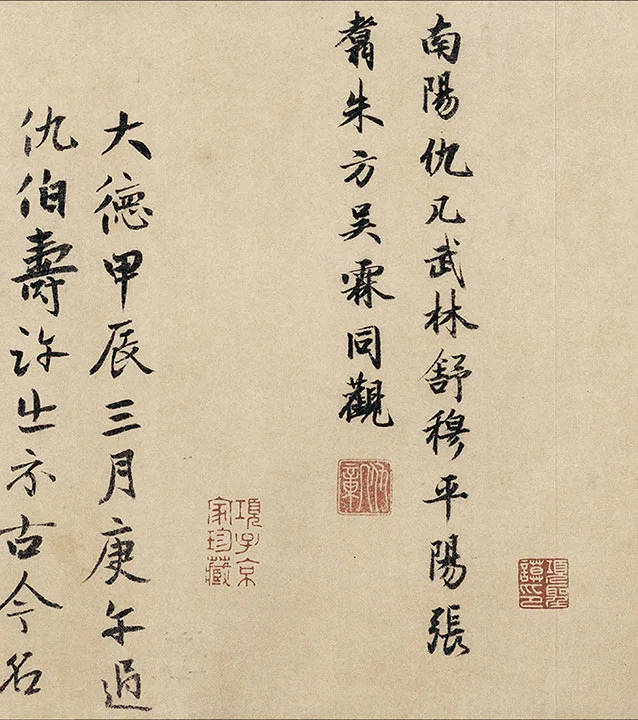 項聖謨印
南陽仇凡武林舒穆平陽張
翥朱方吳霖同觀
項子京
家珍藏
大德甲辰三月庚午過
仇伯壽許出示古今名